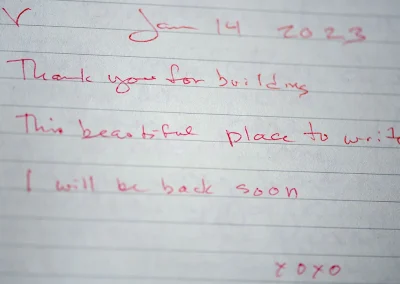 V Jan 14 2023
Thank you for building
This beautiful place to write
I will be back soon
xoxo